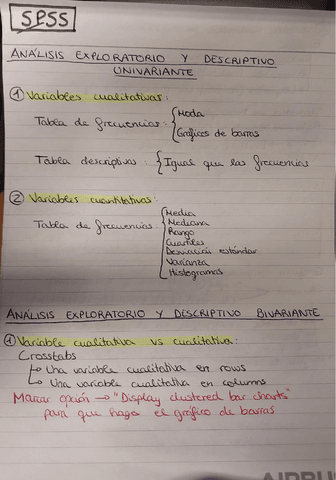 SPSS
ANÁLISIS EXPLORATORIO Y DESCRIPTIVO
UNIVARIANTE
① Variables cualitativas:
Tabla de frecuencias: { Moda
Gráficos de barras
Tabla descriptivos: { Igual que las frecuencias
② Variables cuantitativas:
Tabla de frecuencias { Media
Mediana
Rango
Cuartiles
Desviación estándar
Varianza
Histogramas
ANÁLISIS EXPLORATORIO Y DESCRIPTIVO BIVARIANTE
① Variable cualitativa vs cualitativa:
Crosstabs
↳ Una variable cualitativa en rows
↳ Una variable cualitativa en columns
Marcar opción → "Display clustered bar charts"
para que haga el gráfico de barras
AIRBUS